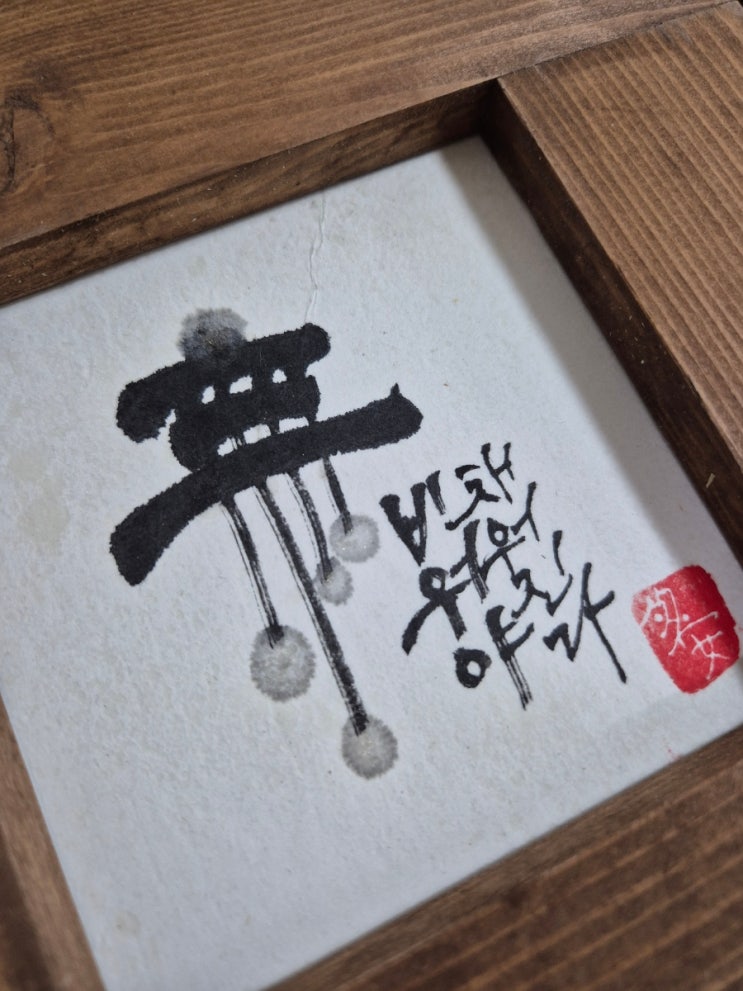 無
비워야
채워진다